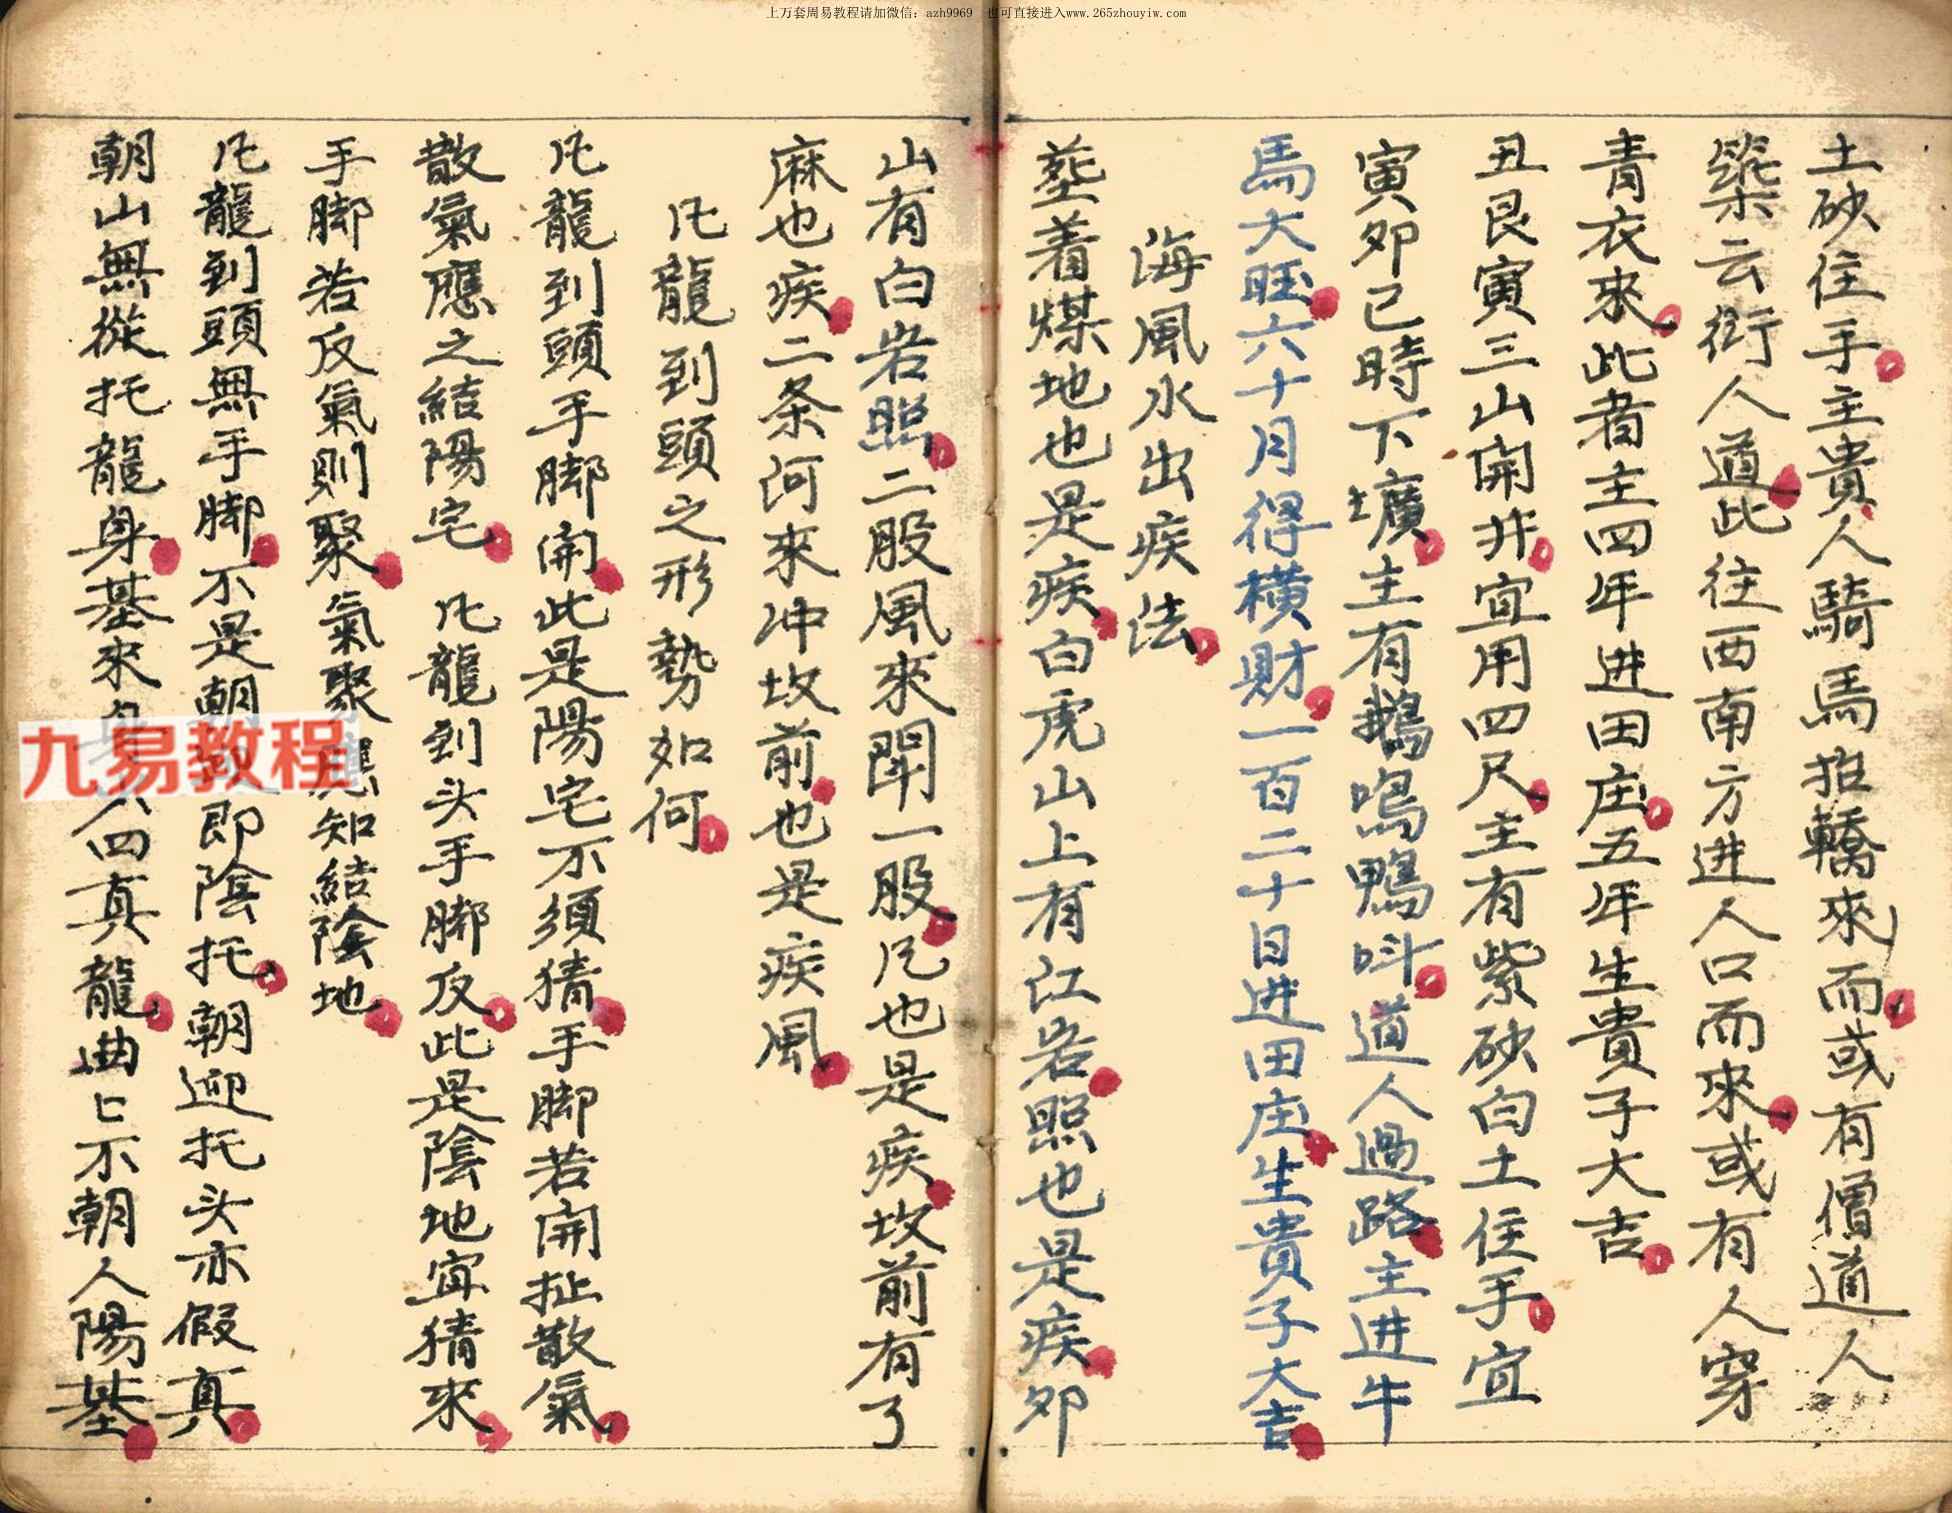 上万套周易教程请加微信：azh9969　也可直接进入www.265zhouyiw.com
土砂住手主貴人騎馬抬轎來而或有僧道人
築云衍人道此往西南方进人口而來或有人穿
青衣來此者主四年进田庄五年生貴子大吉
丑艮寅三山開井宜用四尺主有紫砂白土住手宜
寅卯巳時下壙主有鵝鳴鴨呌道人過路主进牛
馬大旺六十月得橫財一百二十日进田庄生貴子大吉
海風水出疾法
塟着煤地也是疾白虎山上有江岩照也是疾卯
山有白岩照二股風來開一股凡也是疾坟前有了
麻也疾二条河來冲坟前也是疾風
凡龍到頭之形勢如何
凡龍到頭手脚開此是陽宅不須猜手脚若開扯散氣
散氣應之結陽宅 凡龍到头手脚反此是陰地宜猜來
手脚若反氣則聚氣聚應知結陰地
凡龍到頭無手脚不是朝迎即陰托朝迎托头亦假真
朝山無從托龍身基來 四真龍曲匕不朝人陽基
九易教程